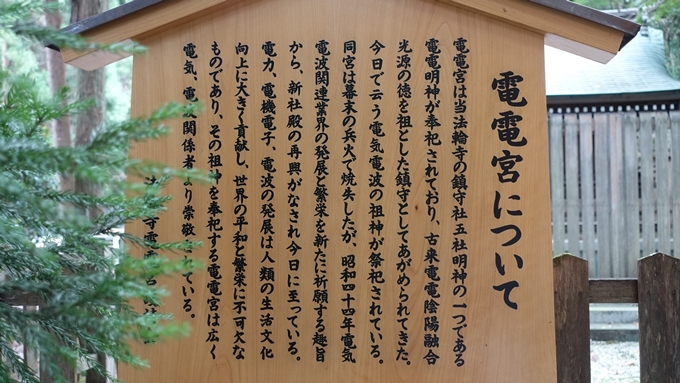 電電宮について
電電宮は当法輪寺の鎮守社五社明神の一つである
電電明神が奉祀されており、古来電電陰陽融合
光源の徳を祖とした鎮守としてあがめられてきた。
今日で云う電気電波の祖神が祭祀されている。
同宮は幕末の兵火で焼失したが、昭和四十四年電気
電波関連業界の発展と繁栄を新たに祈願する趣旨
から、新社殿の再興がなされ今日に至っている。
電力、電機電子、電波の発展は人類の生活文化
向上に大きく貢献し、世界の平和と繁栄に不可欠な
ものであり、その祖神を奉祀する電電宮は広く
電気、電波関係者より崇敬されている。